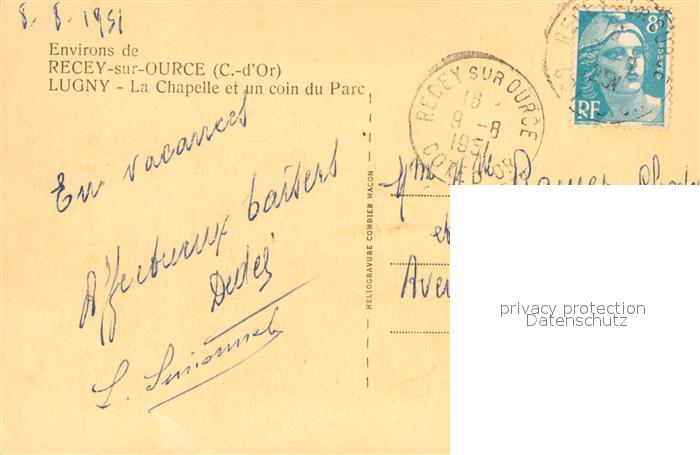 8. 8. 1951
Environs de
RECEY-sur-OURCE (C.-d'Or)
LUGNY - La Chapelle et un coin du Parc
En vacances
Affectueux baisers
Dédé
HELIOGRAVURE COMBIER MACON
8F
POSTES
RF
RECEY SUR OURCE
18
9 - 8
1951
COTE D'OR
Mme et Mr
et
Aven
privacy protection
Datenschutz